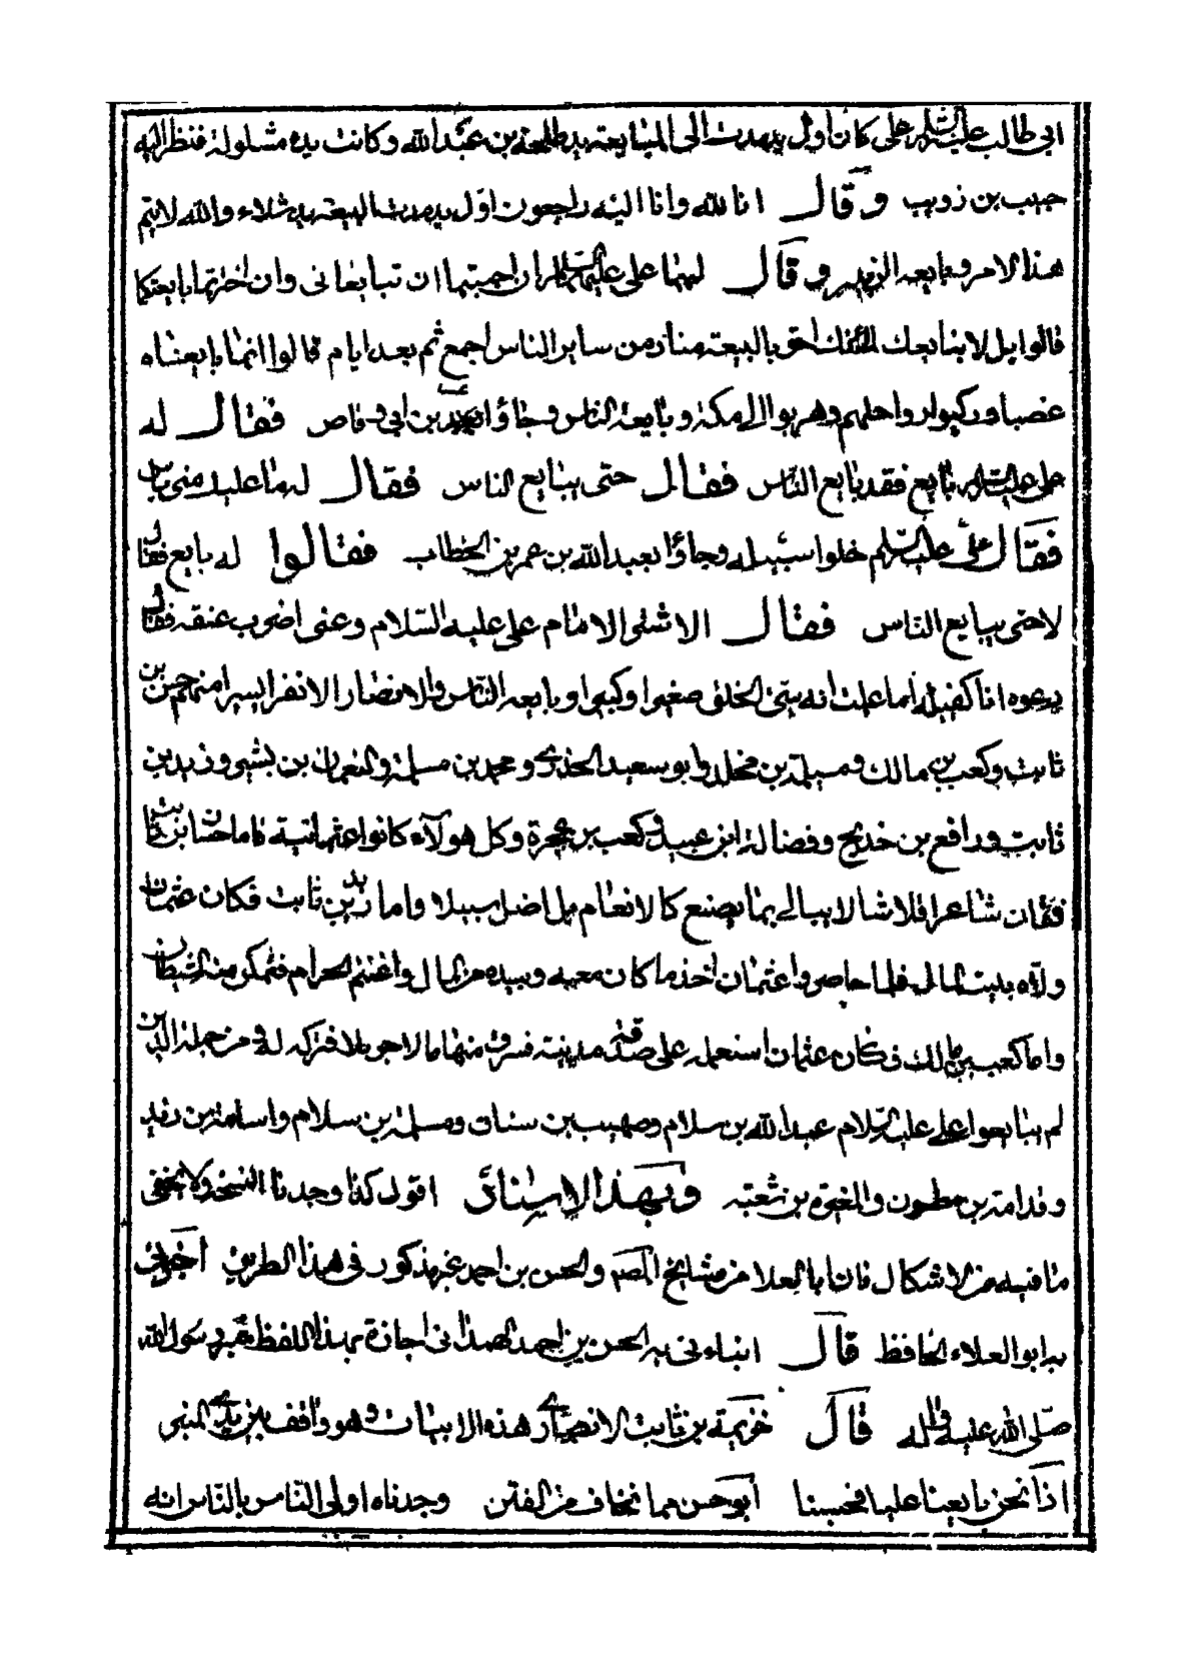 ابي طالب عليه السلم على كان اول يد مدت الى المبايعة يد طلحة بن عبد الله وكانت يده مشلولة فنظر اليه
حبيب بن زويب وقال انا لله وانا اليه راجعون اول يد مدت البيعة يد شلاء والله لا يتم
هذا الامر وبايعه الزبير وقال لهما على عليه السلم ان احببتما ان تبايعانى وان اخترتما بايعتكما
قالوا بل لا بنا نبايعك احق بالبيعة منا ومن ساير الناس اجمع ثم بعد ايام قالوا انما بايعناه
غصبا وركبوا رواحلهم وهربوا الى مكة وبايعه الناس وجاؤا بن ابى وقاص فقال له
على عليه السلم بايع فقد بايع الناس فقال حتى يبايع الناس فقال له ما عليك منى باس
فقال على عليه السلم خلوا سبيله وجاؤا بعبد الله بن عمر بن الخطاب فقالوا له بايع فقال
لا حتى يبايع الناس فقال الاشتر الامام على عليه السلام دعنى اضرب عنقه فقال
دعوه انا كفيله اما علمت انه سيئ الخلق صغيرا وكبيرا وبايعه الناس والانصار الا نفرا يسيرا منهم حسن بن
ثابت وكعب بن مالك ومسيلمة بن مخلد وابو سعيد الخدرى ومحمد بن مسلمة والنعمان بن بشير وزيد بن
ثابت ورافع بن خديج وفضالة ابن عبيد وكعب بن عجرة وكل هولاء كانوا عثمانية فاما حسان بن ثابت
فقان شاعرا قلاشا لا يبالى بما يصنع كالانعام بل اضل سبيلا واما زيد بن ثابت فكان عثمان
ولاه بيت المال فلما حاصروا عثمان اخذ ما كان معه وبيده من المال واغتنم الحرام فتمكن منه الشيطان
واما كعب بن مالك فكان عثمان استعمله على صدقة مدينة فسرق منها مالا جزيلا فتركه له ومن جملة الذين
لم يبايعوا على عليه السلام عبد الله بن سلام وصهيب بن سنان ومسلمة بن سلام واسامة بن زيد
وقدامة بن مظعون والمغيرة بن شعبة وبهذا الاسناد اقول كذا وجدنا النسخة ولا يخفى
ما فيه من الاشكال فان ابا العلا من مشايخ المصم والحسن بن احمد غير مذكور فى هذا الطريق اخبرنى
به ابو العلاء الحافظ قال انباءنى به الحسن بن احمد الهمدانى اجازة بهذا اللفظ رسول الله
صلى الله عليه واله قال خزيمة بن ثابت الانصارى هذه الابيات وهو واقف بين يدى المنبر
اذا نحن بايعنا عليا فحسبنا ابو حسن مما نخاف من الفتن وجدناه اولى الناس بالناس انه